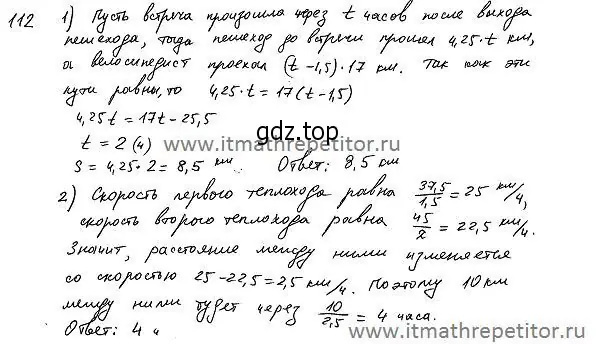 112 1) Пусть встреча произошла через t часов после выхода
пешехода, тогда пешеход до встречи прошел 4,25·t км,
а велосипедист проехал (t-1,5)·17 км. Так как эти
пути равны, то 4,25·t = 17(t-1,5)
4,25t = 17t - 25,5
t = 2 (ч)
www.itmathrepetitor.ru
gdz.top
S = 4,25·2 = 8,5 км Ответ: 8,5 км
2) Скорость первого теплохода равна 37,5/1,5 = 25 км/ч,
скорость второго теплохода равна 45/2 = 22,5 км/ч.
Значит, расстояние между ними изменяется
со скоростью 25-22,5 = 2,5 км/ч. Поэтому 10 км
между ними будет через 10/2,5 = 4 часа.
Ответ: 4 ч
www.itmathrepetitor.ru